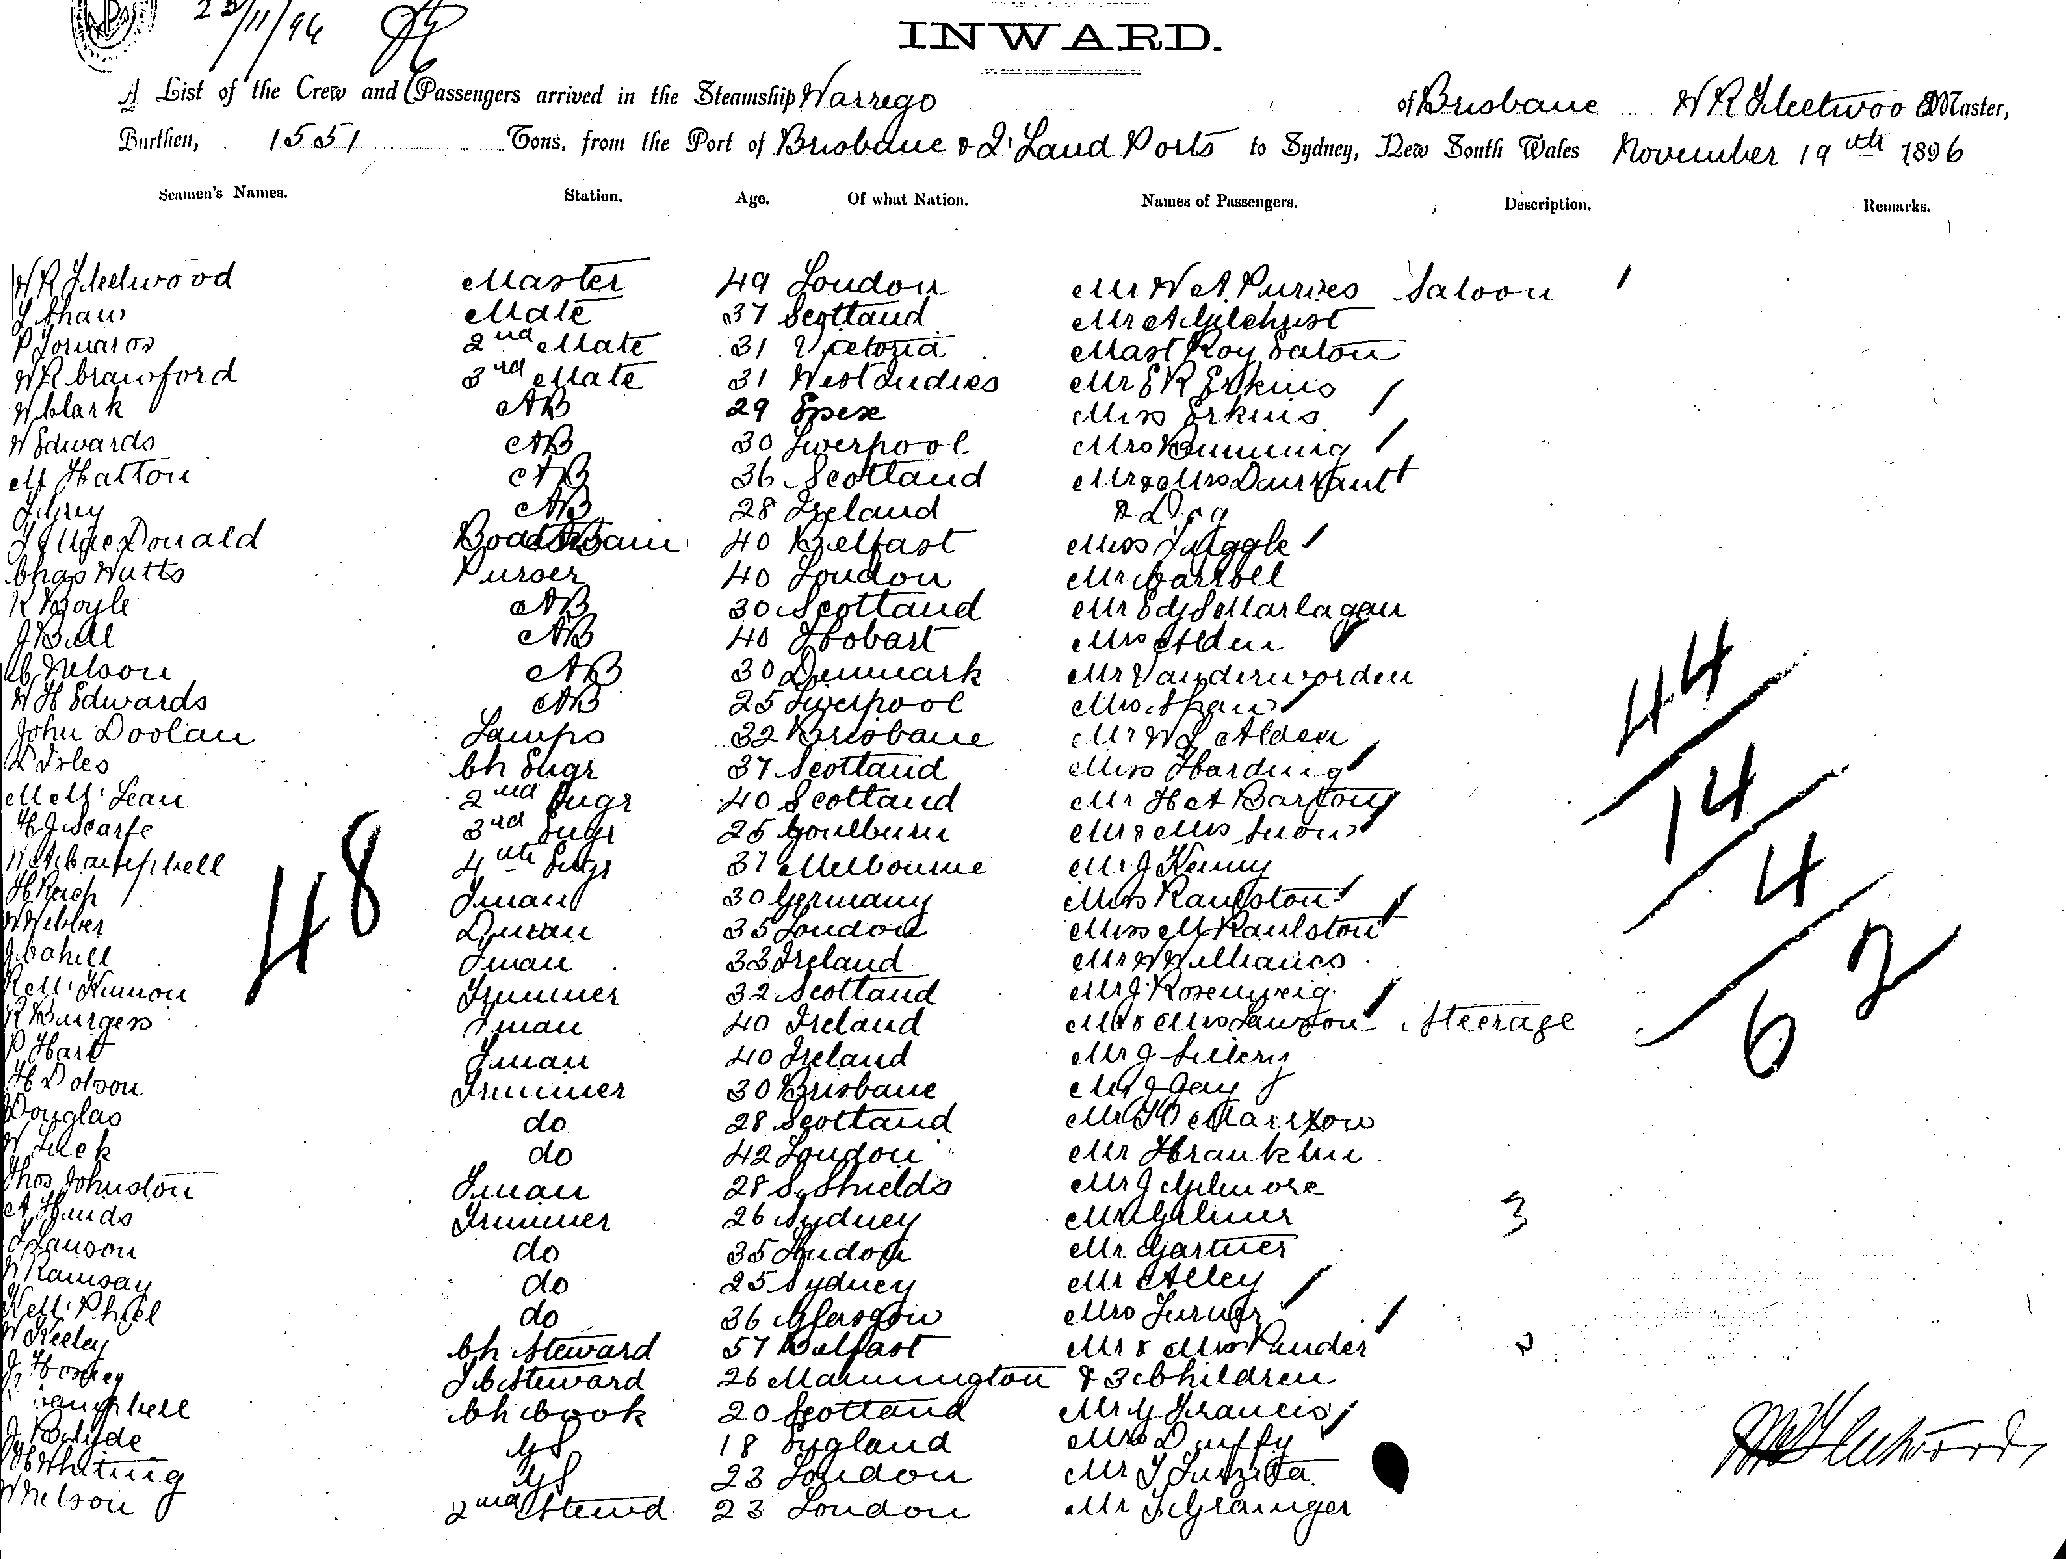 23/11/96
INWARD.
A List of the Crew and Passengers arrived in the Steamship Warrego of Brisbane W R Fleetwood Master,
Burthen, 1551 Tons. from the Port of Brisbane & Q'Land Ports to Sydney, New South Wales November 19th 1896
Seamen's Names. Station. Age. Of what Nation. Names of Passengers. Description. Remarks.
W R Fleetwood Master 49 London Mr W A Purves Saloon
Shaw Mate 37 Scotland Mr A Gilchrist
2nd Mate 31 Victoria Mast Roy Eaton
W R Crawford 3rd Mate 31 West Indies Mr E R Erkins
W Clark AB 29 Essex Miss Erkins
W Edwards AB 30 Liverpool Mrs
M Hatton AB 36 Scotland Mr & Mrs Durrant
AB 28 Ireland &
McDonald Boatswain 40 Belfast Miss
Chas Watts Purser 40 London Mr Carroll
R Boyle AB 30 Scotland Mr
J Bull AB 40 Hobart Mrs Alden
C Nelson AB 30 Denmark Mr Vanderworden
W H Edwards AB 25 Liverpool Mrs Shaw
John Doolan Lamps 32 Brisbane Mr W L Alden
D Isles Ch Engr 37 Scotland Miss Harding
M McLean 2nd Engr 40 Scotland Mr H A Barton
H J Scarfe 3rd Engr 25 Goulburn Mr & Mrs Snow
Campbell 4th Engr 37 Melbourne Mr J Kenny
H Fman 30 Germany Miss Raulston
W Webber 35 London Miss M Raulston
J Cahill Fman 33 Ireland Mr W Williams
R McKinnon Trimmer 32 Scotland Mr J Rosenweig
R Burgess Fman 40 Ireland Mr & Mrs Lawson Steerage
P Hart Fman 40 Ireland Mr J
H Dobson Trimmer 30 Brisbane Mr J
Douglas do 28 Scotland Mr
W Luck do 42 London Mr Franklin
Thos Johnston Fman 28 S. Shields Mr J Gilmore
A Hinds Trimmer 26 Sydney Mr 3
do 35 London Mr Gartner
W Ramsay do 25 Sydney Mr Alley
McPhiel do 36 Glasgow Mrs Turner
W Keeley Ch Steward 57 Belfast Mr & Mrs Pinder 2
Steward 26 Mannington & 3 Children
Campbell Ch Cook 20 Scotland Mr G Francis
J GS 18 England Mrs Duffy
Whiting GS 23 London Mr T
W Nelson 2nd Stewd 23 London Mr Grainger
48
44
14
4
62
W R Fleetwood